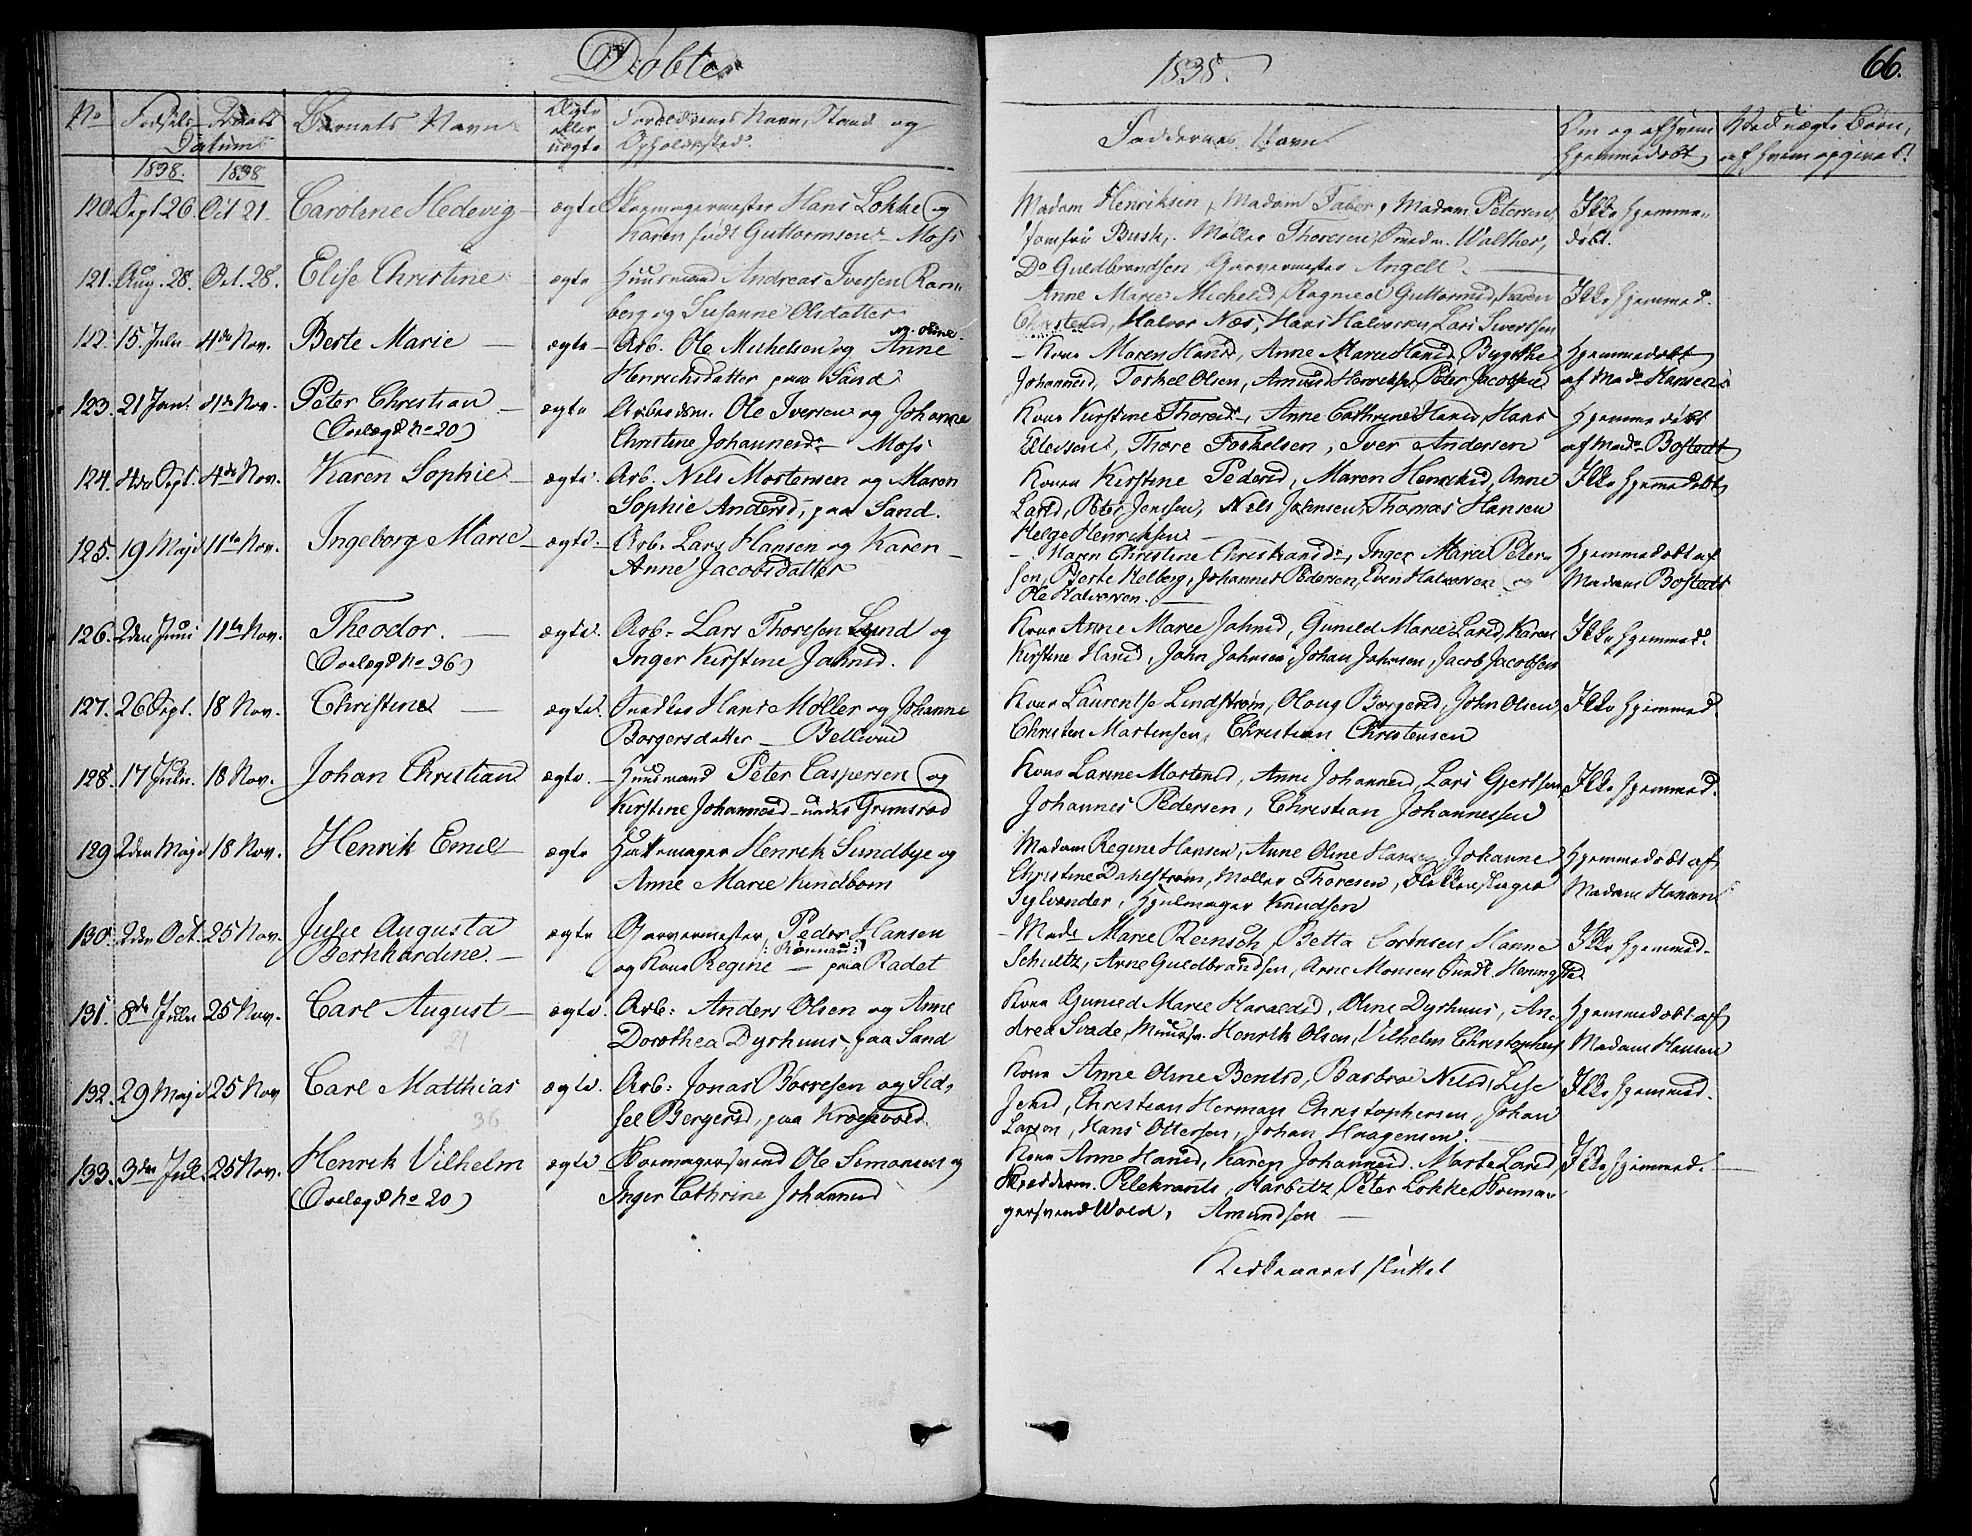 Døbte
1838.
66.
No
Fødsels
Daabs
Datum
Barnets Navn
Ægte
eller
uægte
Forældrenes Navn, Stand og
Opholdssted.
Faddernes Navn
Om og af hvem
hjemmedøbt
Ved uægte Børn,
af hvem opgivet?
1838.
1838
120. Sept. 26. Oct. 21. Caroline Hedevig ægte Skomagermester Hans Løkke og
Karen født Guttormsen Moss
Madam Henriksen, Madam Faber, Madam Petersen,
Jomfru Busk, Møller Thoresen, Walther,
Do Guldbrandsen, Garvermester Angell.
Ikke hjemme-
døbt.
121. Aug. 28. Oct. 28. Elise Christine ægte Huusmand Andreas Iversen Ram-
berg og Susanne Olsdatter
Anne Marie Michelsd, Ragnild Guttormsd, Karen
Christensd, Halvor Næs, Hans Halvorsen, Lars Sivertsen
Ikke hjemmed.
122. 15. Juli 4de Nov. Berte Marie ægte Arb. Ole Michelsen og Anne
Henrichsdatter paa Sand
Kone Maren Hansd, Anne Marie Hansd, Birgithe
Johannesd, Torkel Olsen, Amund Henriksen, Peter Jacobsen
Hjemmedøbt
af Made Hansen
123. 21 Jan. 4de Nov. Peter Christian
(Overlægd No 20)
ægte Arbeidsm. Ole Iversen og Johanne
Christine Johannesdr Moss
Kone Kirstine Thoresd, Anne Cathrine Hansd, Hans
Ellevsen, Thore Torkelsen, Iver Andersen
Hjemmedøbt
af Made Bostedt
124. 4de Sept. 4de Nov. Karen Sophie ægte. Arb. Nils Mortensen og Maren
Sophie Andersd, paa Sand.
Konen Kirstine Pedersd, Maren Henriksd, Anne
Larsd, Peter Jenssen, Nils Johnsen, Thomas Hansen
Helge Henrichsen
Ikke hjemmedøbt
125. 19 Maj 11te Nov. Ingeborg Marie ægte. Arb. Lars Hansen og Karen
Anne Jacobsdatter
Maren Christine Christiansdr, Inger Marie Peter-
sen, Berte Helberg, Johannes Pedersen, Even Halvorsen og
Ole Halvorsen.
Hjemmedøbt af
Madam Bostedt
126. 2den Juni 11te Nov. Theodor.
(Overlægd No 36)
ægte. Arb. Lars Thoresen Lund og
Inger Kirstine Johnsd.
Kone Anne Marie Johnsd, Gunild Marie Larsd, Karen
Kirstine Hansd, John Johnsen, Johan Johnsen, Jacob Jacobsen
Ikke hjemmed.
127. 26 Sept. 18 Nov. Christine ægte. Snedker Hans Møller og Johanne
Borgersdatter Bellevue
Kone Laurentse Lindstrøm, Oloug Borgersd, John Olsen,
Christen Martensen, Christian Christensen
Ikke hjemmed.
128. 17 Juli. 18 Nov. Johan Christian ægte. Huusmand Peter Caspersen og
Kirstine Johannesd under Grimsrød
Kone Larine Mortensd, Anne Johannesd, Lars Gjertsen
Johannes Pedersen, Christian Johannessen
Ikke hjemmed.
129 2den Maj 18 Nov. Henrik Emil ægte Hattemager Henrik Sundbye og
Anne Marie Kindbom
Madam Regine Hansen, Anne Oline Hansen, Johanne
Christine Dahlstrøm, Møller Thoresen,
Sylvander, Hjulmager Knudsen
Hjemmedøbt af
Madam Hansen
130. 2den Oct. 25 Nov. Julie Augusta
Bernhardine.
ægte Garvermester Peder Hansen
og Kone Regine paa Radet
Made Marie Reinsch, Betta Sørensen, Hanne
Schultz, Arne Guldbrandsen, Arne Monsen
Ikke hjemmed.
131. 8de Juli 25 Nov. Carl August
21
ægte. Arb: Anders Olsen og Anne
Dorothea Dyrhuus, paa Sand
Kone Gunild Marie Haraldsd, Oline Dyrhuus, An-
drea Svade, Henrik Olsen, Vilhelm Christophers
Hjemmedøbt af
Madam Hansen
132. 29 Maj 25 Nov Carl Matthias
36
ægte. Arb: Jonas Børresen og Sid-
sel Bergersd, paa Krogsvold.
Kone Anne Oline Bentsd, Barbroe Nilsd, Lise
Jensd, Christian Herman Christophersen, Johan
Larsen, Hans Ottersen, Johan Haagensen.
Ikke hjemmed.
133. 3die Jul. 25 Nov. Henrik Vilhelm
(Overlægd No 20)
ægte Skomagersvend Ole Simonsen og
Inger Cathrine Johannesd
Kone Anne Hansd, Karen Johannesd. Marte Larsd,
Skredderm. Pelekrantz, Harbitz, Peter Løkke, Skoma-
gersvend Wold, Amundsen
Ikke hjemmed.
Kirkeaaret sluttet